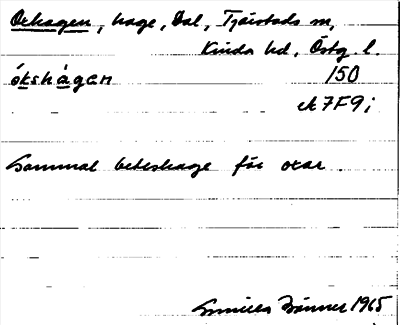 Oxhagen, hage, Dal, Tjärstads sn,
Kinda hd, Östg. l.
ókshàgen 150
ek 7F9i
Gammal beteshage för oxar
Gunilla Brönner 1965